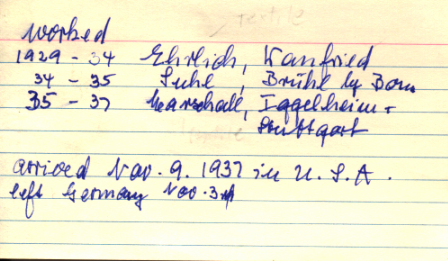 worked
1929 - 34 Ehrlich, Wanfried
34 - 35 Suhl, Brühl by Bonn
35 - 37 Marschall, Iggelheim +
Stuttgart
arrived Nov. 9. 1937 in U.S.A.
left Germany Nov. 3rd